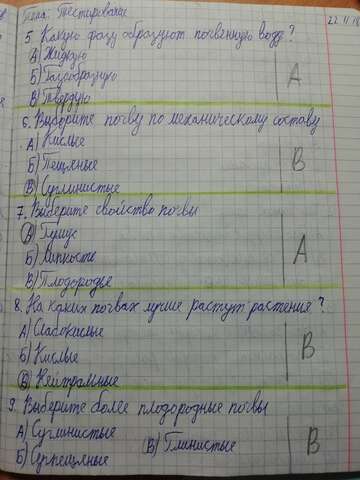 Тема: Тестирование 22.11.18
5. Какую фазу образуют почвенную воду?
А) Жидкую
Б) Газообразную А
В) Твердую
6. Выберите почву по механическому составу
А) Кислые
Б) Пещяные В
В) Суглинистые
7. Выберите свойства почвы
А) Гумус
Б) Липкость А
В) Плодородье
8. На каких почвах лучше растут растения?
А) Слабокислые
Б) Кислые В
В) Нейтральные
9. Выберите более плодородные почвы
А) Суглинистые
В) Глинистые В
Б) Супещяные